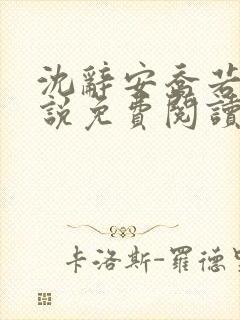 沈辭安喬若
說免費閱讀
卡洛斯-羅德里